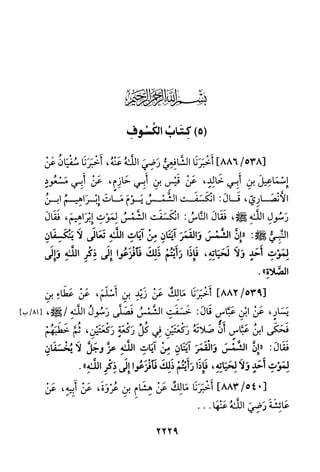 ﷽
(٥) كِتَابُ الكُسُوفِ
[٥٣٨/ ٨٨٦] أَخْبَرَنَا الشَّافِعِيُّ رَضِيَ اللَّهُ عَنْهُ، أَخْبَرَنَا سُفْيَانُ عَنْ
إِسْمَاعِيلَ بنِ أَبِي خَالِدٍ، عَنْ قَيْسِ بنِ أَبِي حَازِمٍ، عَنْ أَبِي مَسْعُودٍ
الأَنْصَارِيِّ، قَالَ: انْكَسَفَتِ الشَّمْسُ يَوْمَ مَاتَ إِبْرَاهِيمُ ابنُ
رَسُولِ اللَّهِ ﷺ، فَقَالَ النَّاسُ: انْكَسَفَتِ الشَّمْسُ لِمَوْتِ إِبْرَاهِيمَ، فَقَالَ
النَّبِيُّ ﷺ: «إِنَّ الشَّمْسَ وَالقَمَرَ آيَتَانِ مِنْ آيَاتِ اللَّهِ تَعَالَى لَا يَنْكَسِفَانِ
لِمَوْتِ أَحَدٍ وَلَا لِحَيَاتِهِ، فَإِذَا رَأَيْتُمْ ذَلِكَ فَافْزَعُوا إِلَى ذِكْرِ اللَّهِ وَإِلَى
الصَّلَاةِ».
[٥٣٩/ ٨٨٢] أَخْبَرَنَا مَالِكٌ عَنْ زَيْدِ بنِ أَسْلَمَ، عَنْ عَطَاءِ بنِ
يَسَارٍ، عَنْ ابْنِ عَبَّاسٍ قَالَ: خَسَفَتِ الشَّمْسُ فَصَلَّى رَسُولُ اللَّهِ / ﷺ، [٨١/ب]
فَحَكَى ابنُ عَبَّاسٍ أَنَّ صَلَاتَهُ رَكْعَتَيْنِ فِي كُلِّ رَكْعَةٍ رَكْعَتَيْنِ، ثُمَّ خَطَبَهُمْ
فَقَالَ: «إِنَّ الشَّمْسَ وَالْقَمَرَ آيَتَانِ مِنْ آيَاتِ اللَّهِ عزَّ وجَلَّ لَا يُخْسَفَانِ
لِمَوْتِ أَحَدٍ وَلَا لِحَيَاتِهِ، فَإِذَا رَأَيْتُمْ ذَلِكَ فَافْزَعُوا إِلَى ذِكْرِ اللَّهِ».
[٥٤٠/ ٨٨٣] أَخْبَرَنَا مَالِكٌ عَنْ هِشَامِ بنِ عُرْوَةَ، عَنْ أَبِيهِ، عَنْ
عَائِشَةَ رَضِيَ اللَّهُ عَنْهَا...
٢٢٢٩